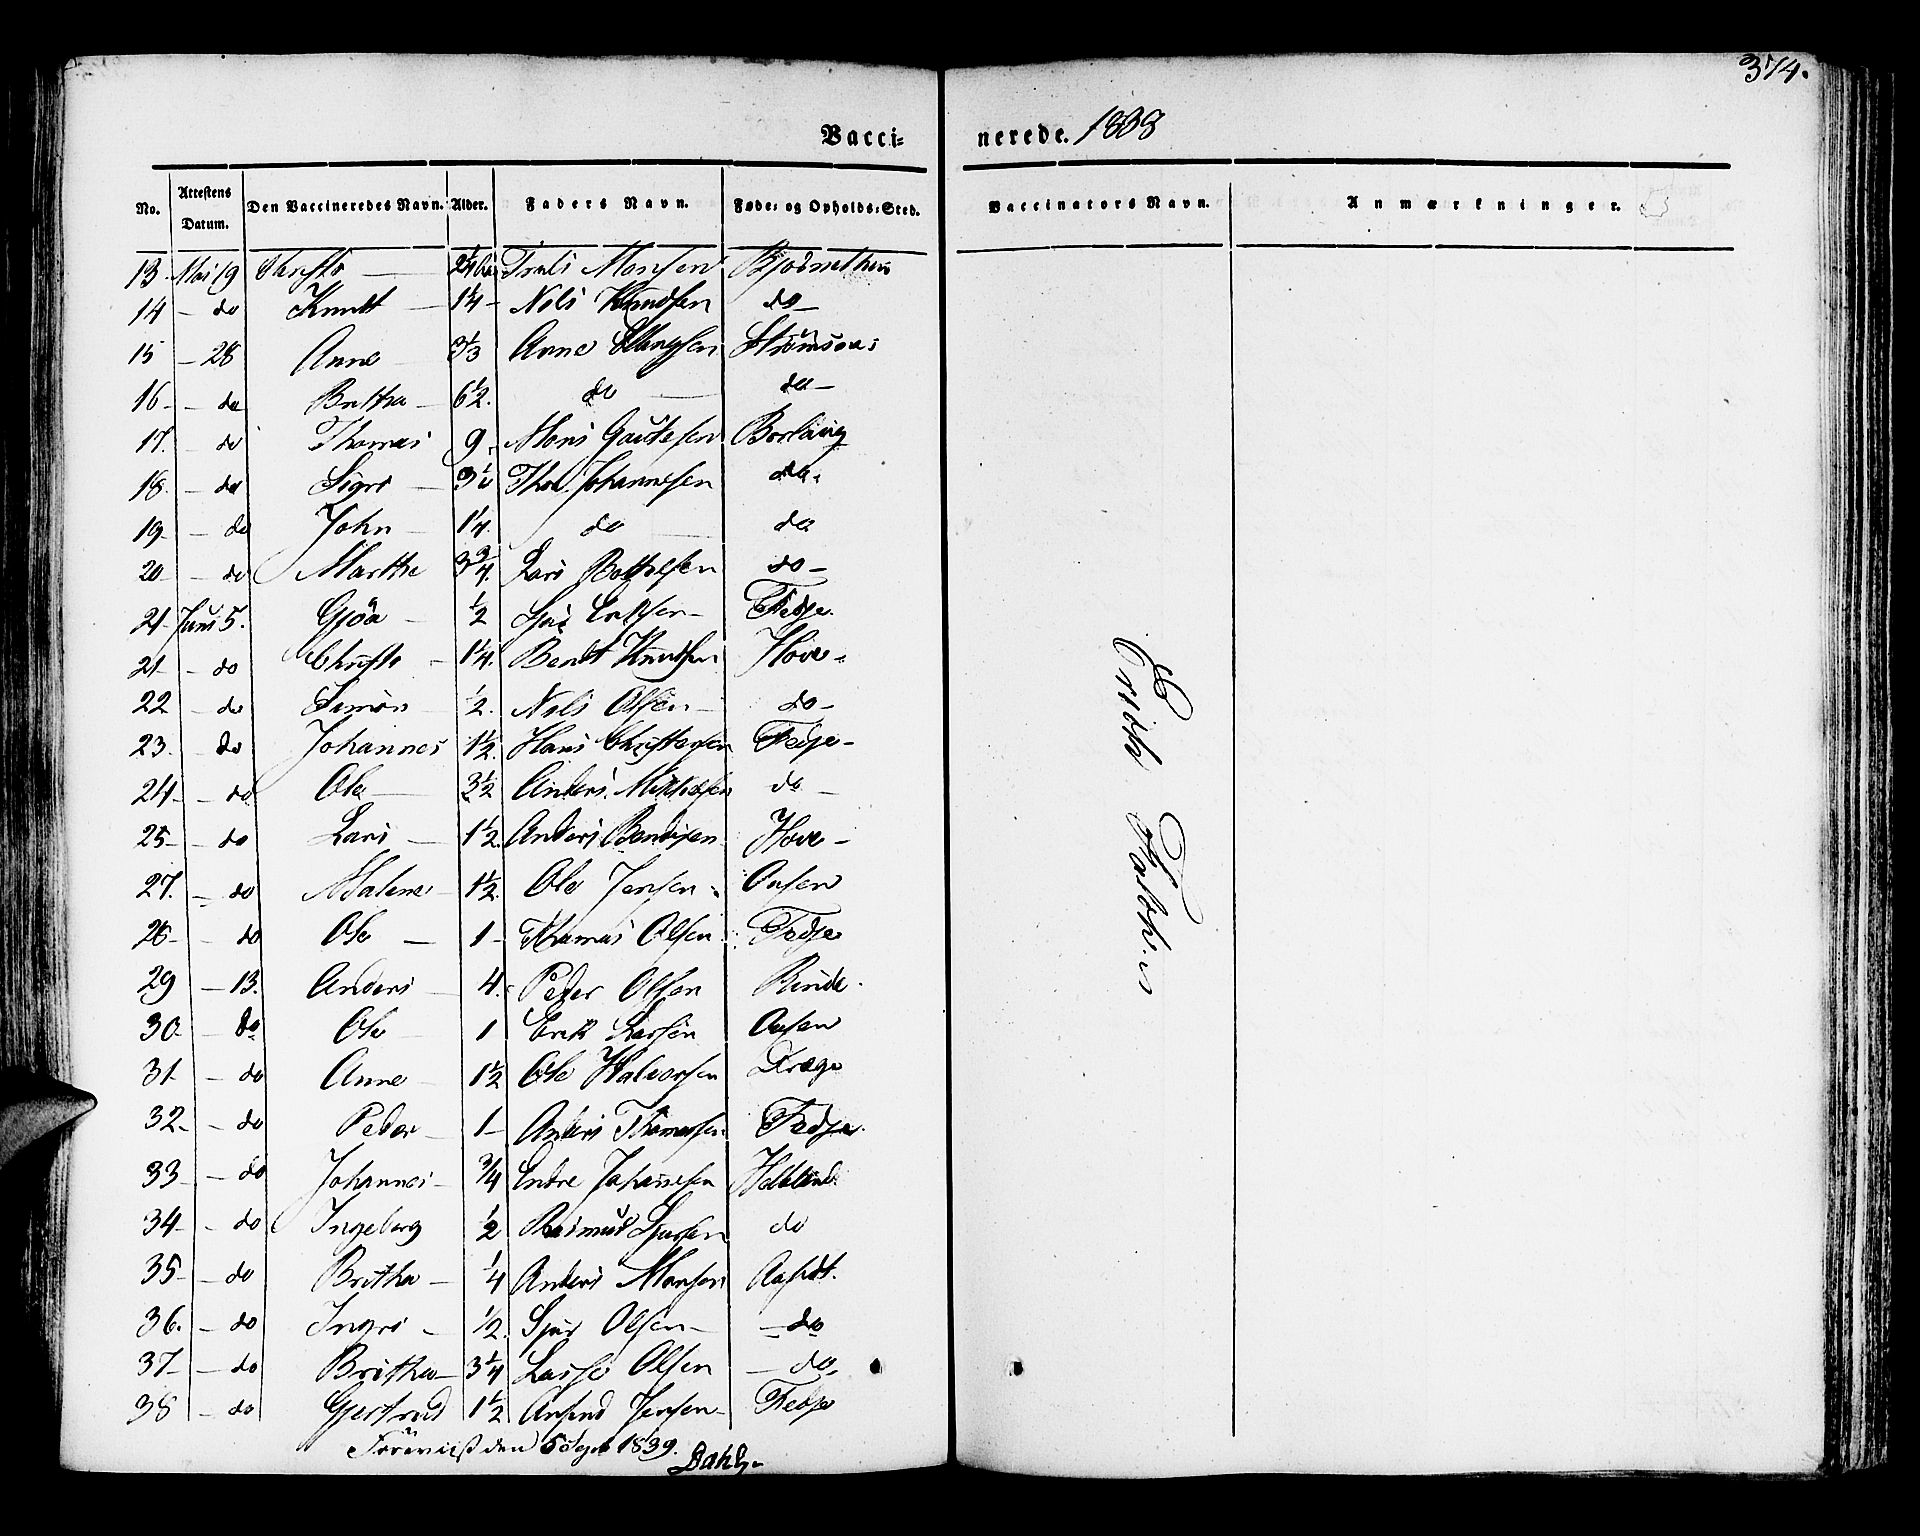 374.
Vacci= nerede. 1838
No. Attestens Datum. Den Vaccineredes Navn. Alder. Faders Navn. Føde= og Opholds=Sted. Vaccinators Navn. Anmærkninger.
13. Mai 19 Monsen
14 - do Knudt - 1¼ - Nils Knudsen do -
15 - 28 Anne 3⅓ Anne
16 - - do Britha - 6½. do - do -
17. - do Thomas 9 - Mons Gautesen
18. - do Sigri - 3½ Johannesen do.
19 - - do John - 1¼. do do
20 - - do Marthe 3¾. Lars Bottolfsen do -
21 - Juni 5. Gjöa - ½ Eriksen - Fedje.
21 - - do Christe - 1¼. Bendt Knudsen Hove -
22 - do Simon - ½. Nils Olsen - do -
23. - do Johannes 1½. Hans Christensen Fedje -
24 - - do Ole - 3½ Anders do -
25 - - do Lars - 1½. Anders Bendixen Hove -
27. - do Malene 1½. Ole Jensen -
28 - - do Ole - 1 - Thomas Olsen. Fedje
29 - 13. Anders - 4. Peder Olsen Rinde.
30 - - do Ole - 1 Erik Larsen
31 - - do Anne - 1½ Ole Halvorsen Drage
32 - - do Peder - 1 - Anders Thomassen Fedje.
33 - - do Johannes - ¾ Endre Johannesen
34 - - do Ingeborg ½ Rasmus Sjursen do
35 - - do Britha - ¼ Anders Monsen
36. - do Ingri - ½. Sjur Olsen - - do
37 - - do Britha - 3¼ Lasse Olsen - do.
38 - do Gjertrud 1½ Amund Jensen - Fedje
den 1839.
Dahl.